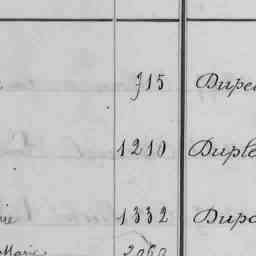 715 Dupe
1210 Duple
1332 Dupo
Marie 2060